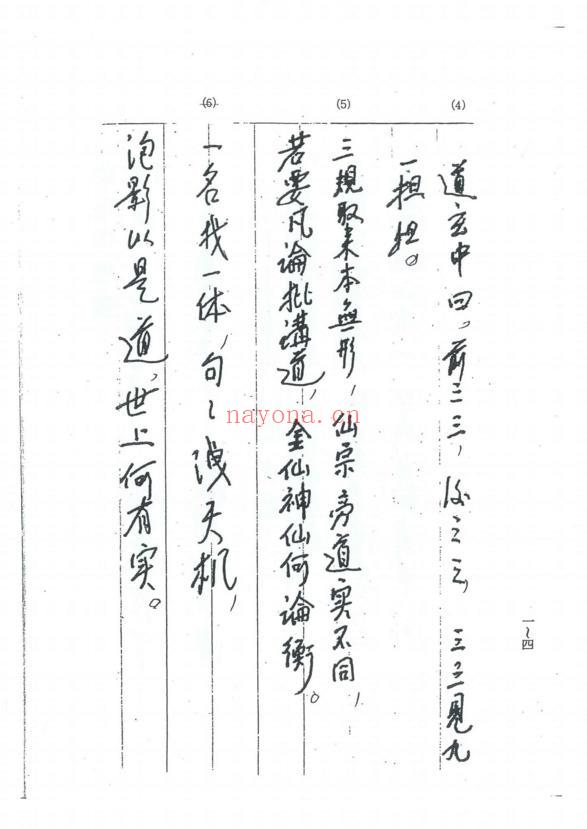 (4)
道玄中曰。前三三，後三三，三三見九
一担担。
(5)
三規取来本無形，仙宗旁道实不同，
若要凡論批講道，金仙神仙何論衡。
(6)
一名我一体，句々洩天机，
泡影以是道，世上何有实。
一~四
nayona.cn